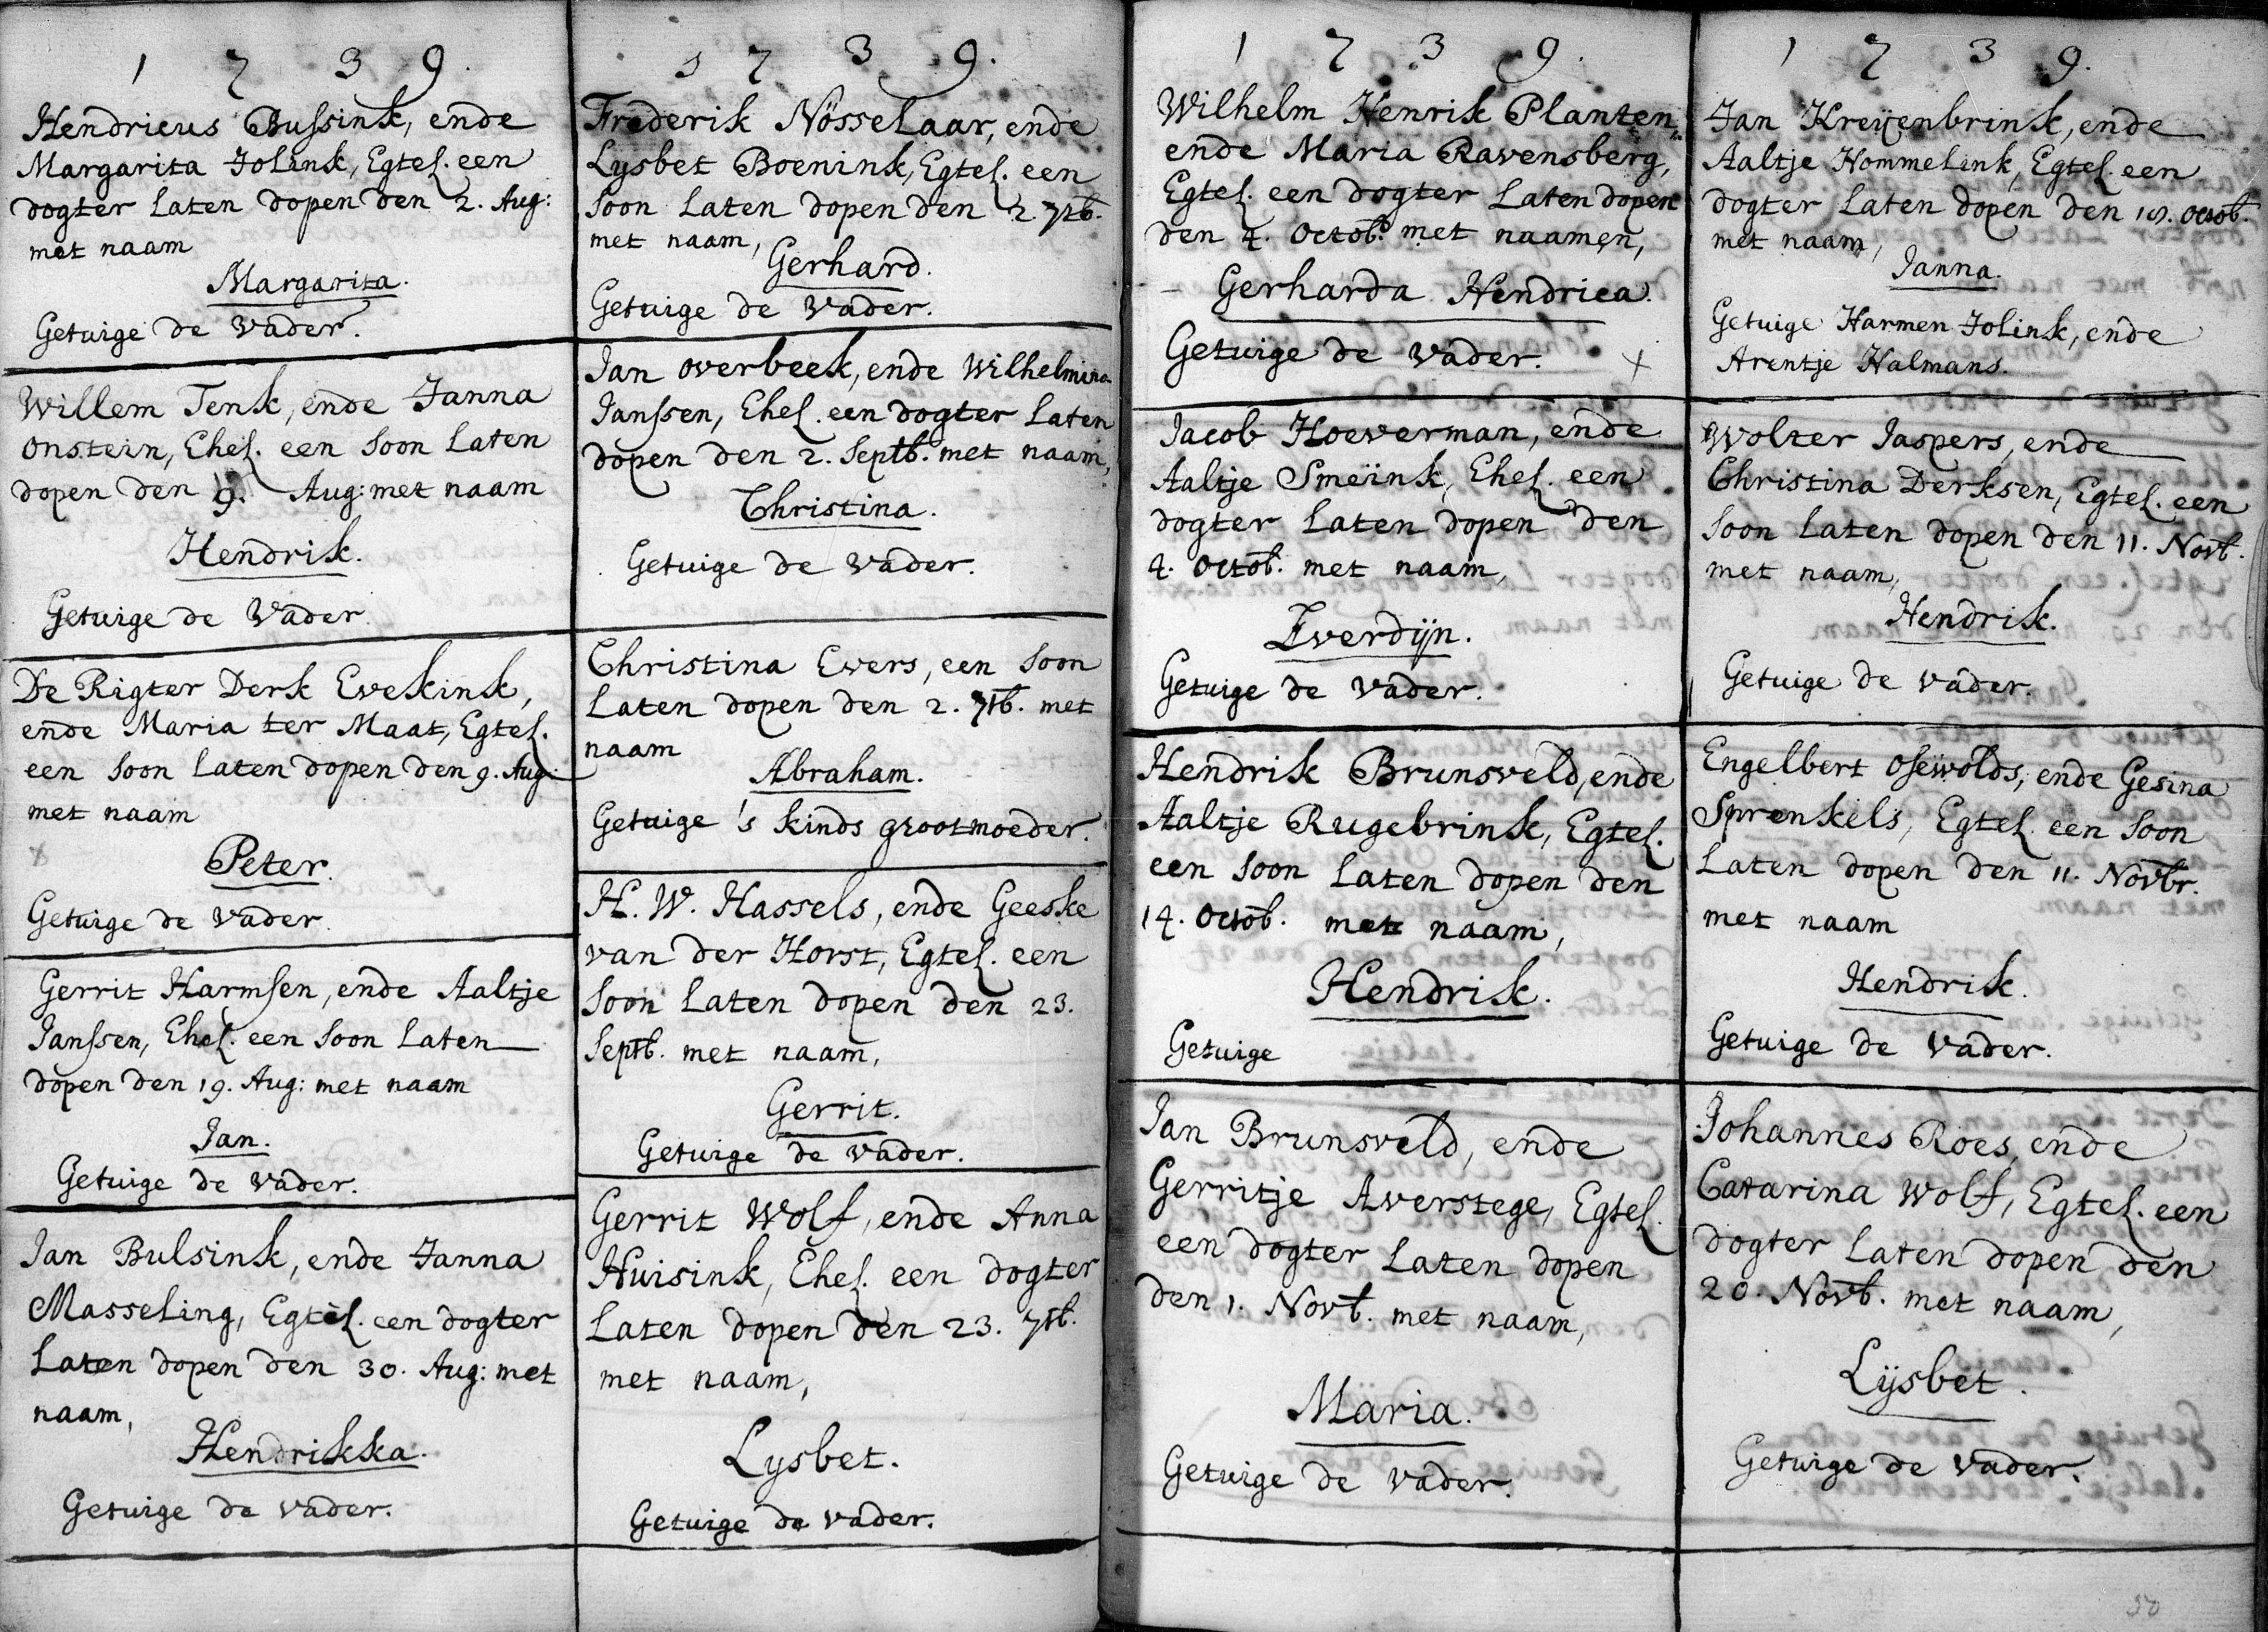 1739.
Hendricus Bussink, ende
Margarita Jolink, Egtel. een
dogter laten dopen den 2. Aug:
met naam
Margarita.
Getuige de vader.
Willem Tenk, ende Janna
Onstein, Ehel. een soon laten
dopen den 9. Aug: met naam
Hendrik.
Getuige de Vader.
De Rigter Derk Evekink,
ende Maria ter Maat, Egtel.
een soon laten dopen den 9. Aug:
met naam
Peter.
Getuige de vader.
Gerrit Harmsen, ende Aaltje
Janssen, Ehel. een soon laten
dopen den 19. Aug: met naam
Jan.
Getuige de vader.
Jan Bulsink, ende Janna
Masseling, Egtel. een dogter
laten dopen den 30. Aug: met
naam,
Hendrikka.
Getuige de vader.
1739.
Frederik Nösselaar, ende
Lysbet Boenink, Egtel. een
soon laten dopen den 2 7tb.
met naam,
Gerhard.
Getuige de vader.
Jan overbeek, ende Wilhelmina
Janssen, Ehel. een dogter laten
dopen den 2. Septb. met naam,
Christina.
Getuige de vader.
Christina Evers, een soon
laten dopen den 2. 7tb. met
naam
Abraham.
Getuige 's kinds grootmoeder.
H. W. Hassels, ende Geeske
van der Horst, Egtel. een
soon laten dopen den 23.
Septb. met naam,
Gerrit.
Getuige de vader.
Gerrit Wolf, ende Anna
Huisink, Ehel. een dogter
laten dopen den 23. 7tb.
met naam,
Lysbet.
Getuige de vader.
1739.
Wilhelm Henrik Planten,
ende Maria Ravensberg,
Egtel. een dogter laten dopen
den 4. Octob. met naamen,
Gerharda Hendrica.
Getuige de vader. x
Jacob Hoeverman, ende
Aaltje Smeïnk, Ehel. een
dogter laten dopen den
4. Octob. met naam,
Everdijn.
Getuige de vader.
Hendrik Brunsveld, ende
Aaltje Rugebrink, Egtel.
een soon laten dopen den
14. Octob. met naam,
Hendrik.
Getuige
Jan Brunsveld, ende
Gerritje Averstege, Egtel.
een dogter laten dopen
den 1. Novb. met naam,
Maria.
Getuige de vader.
1739.
Jan Kreijenbrink, ende
Aaltje Hommelink, Egtel. een
dogter laten dopen den Octob.
met naam,
Janna.
Getuige Harmen Jolink, ende
Arentje Halmans.
Wolter Jaspers, ende
Christina Derksen, Egtel. een
soon laten dopen den 11. Novb.
met naam,
Hendrik.
Getuige de vader.
Engelbert Osewolds, ende Gesina
Sprenkels, Egtel. een soon
laten dopen den 11. Novbr.
met naam
Hendrik.
Getuige de vader.
Johannes Roes, ende
Catarina Wolf, Egtel. een
dogter laten dopen den
20. Novb. met naam,
Lijsbet.
Getuige de vader.
50